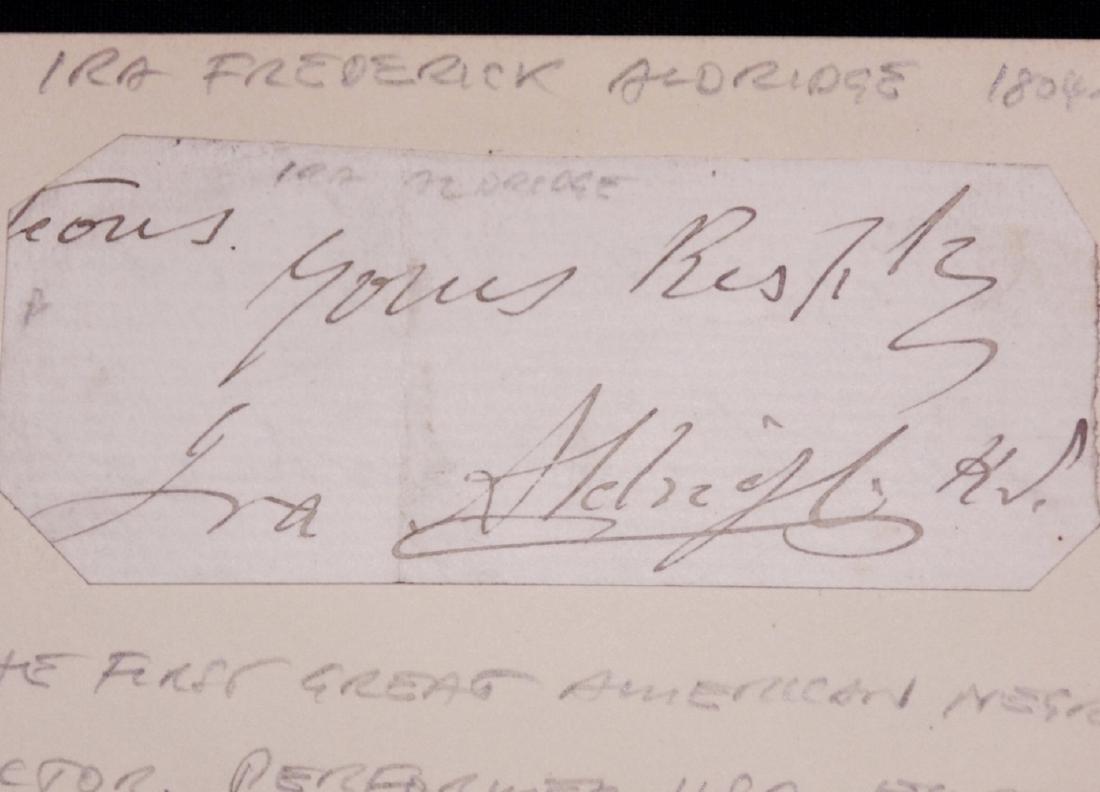 IRA FREDERICK ALDRIDGE 1804-
IRA ALDRIDGE
Yours Resply
Ira Aldridge Kt.
HE FIRST GREAT AMERICAN NEGR
CTOR. PERFORMED